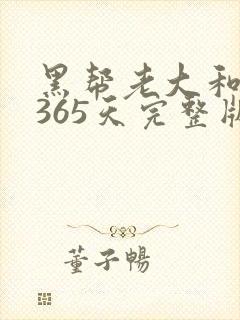 黑帮老大和
365天完整版
董子畅